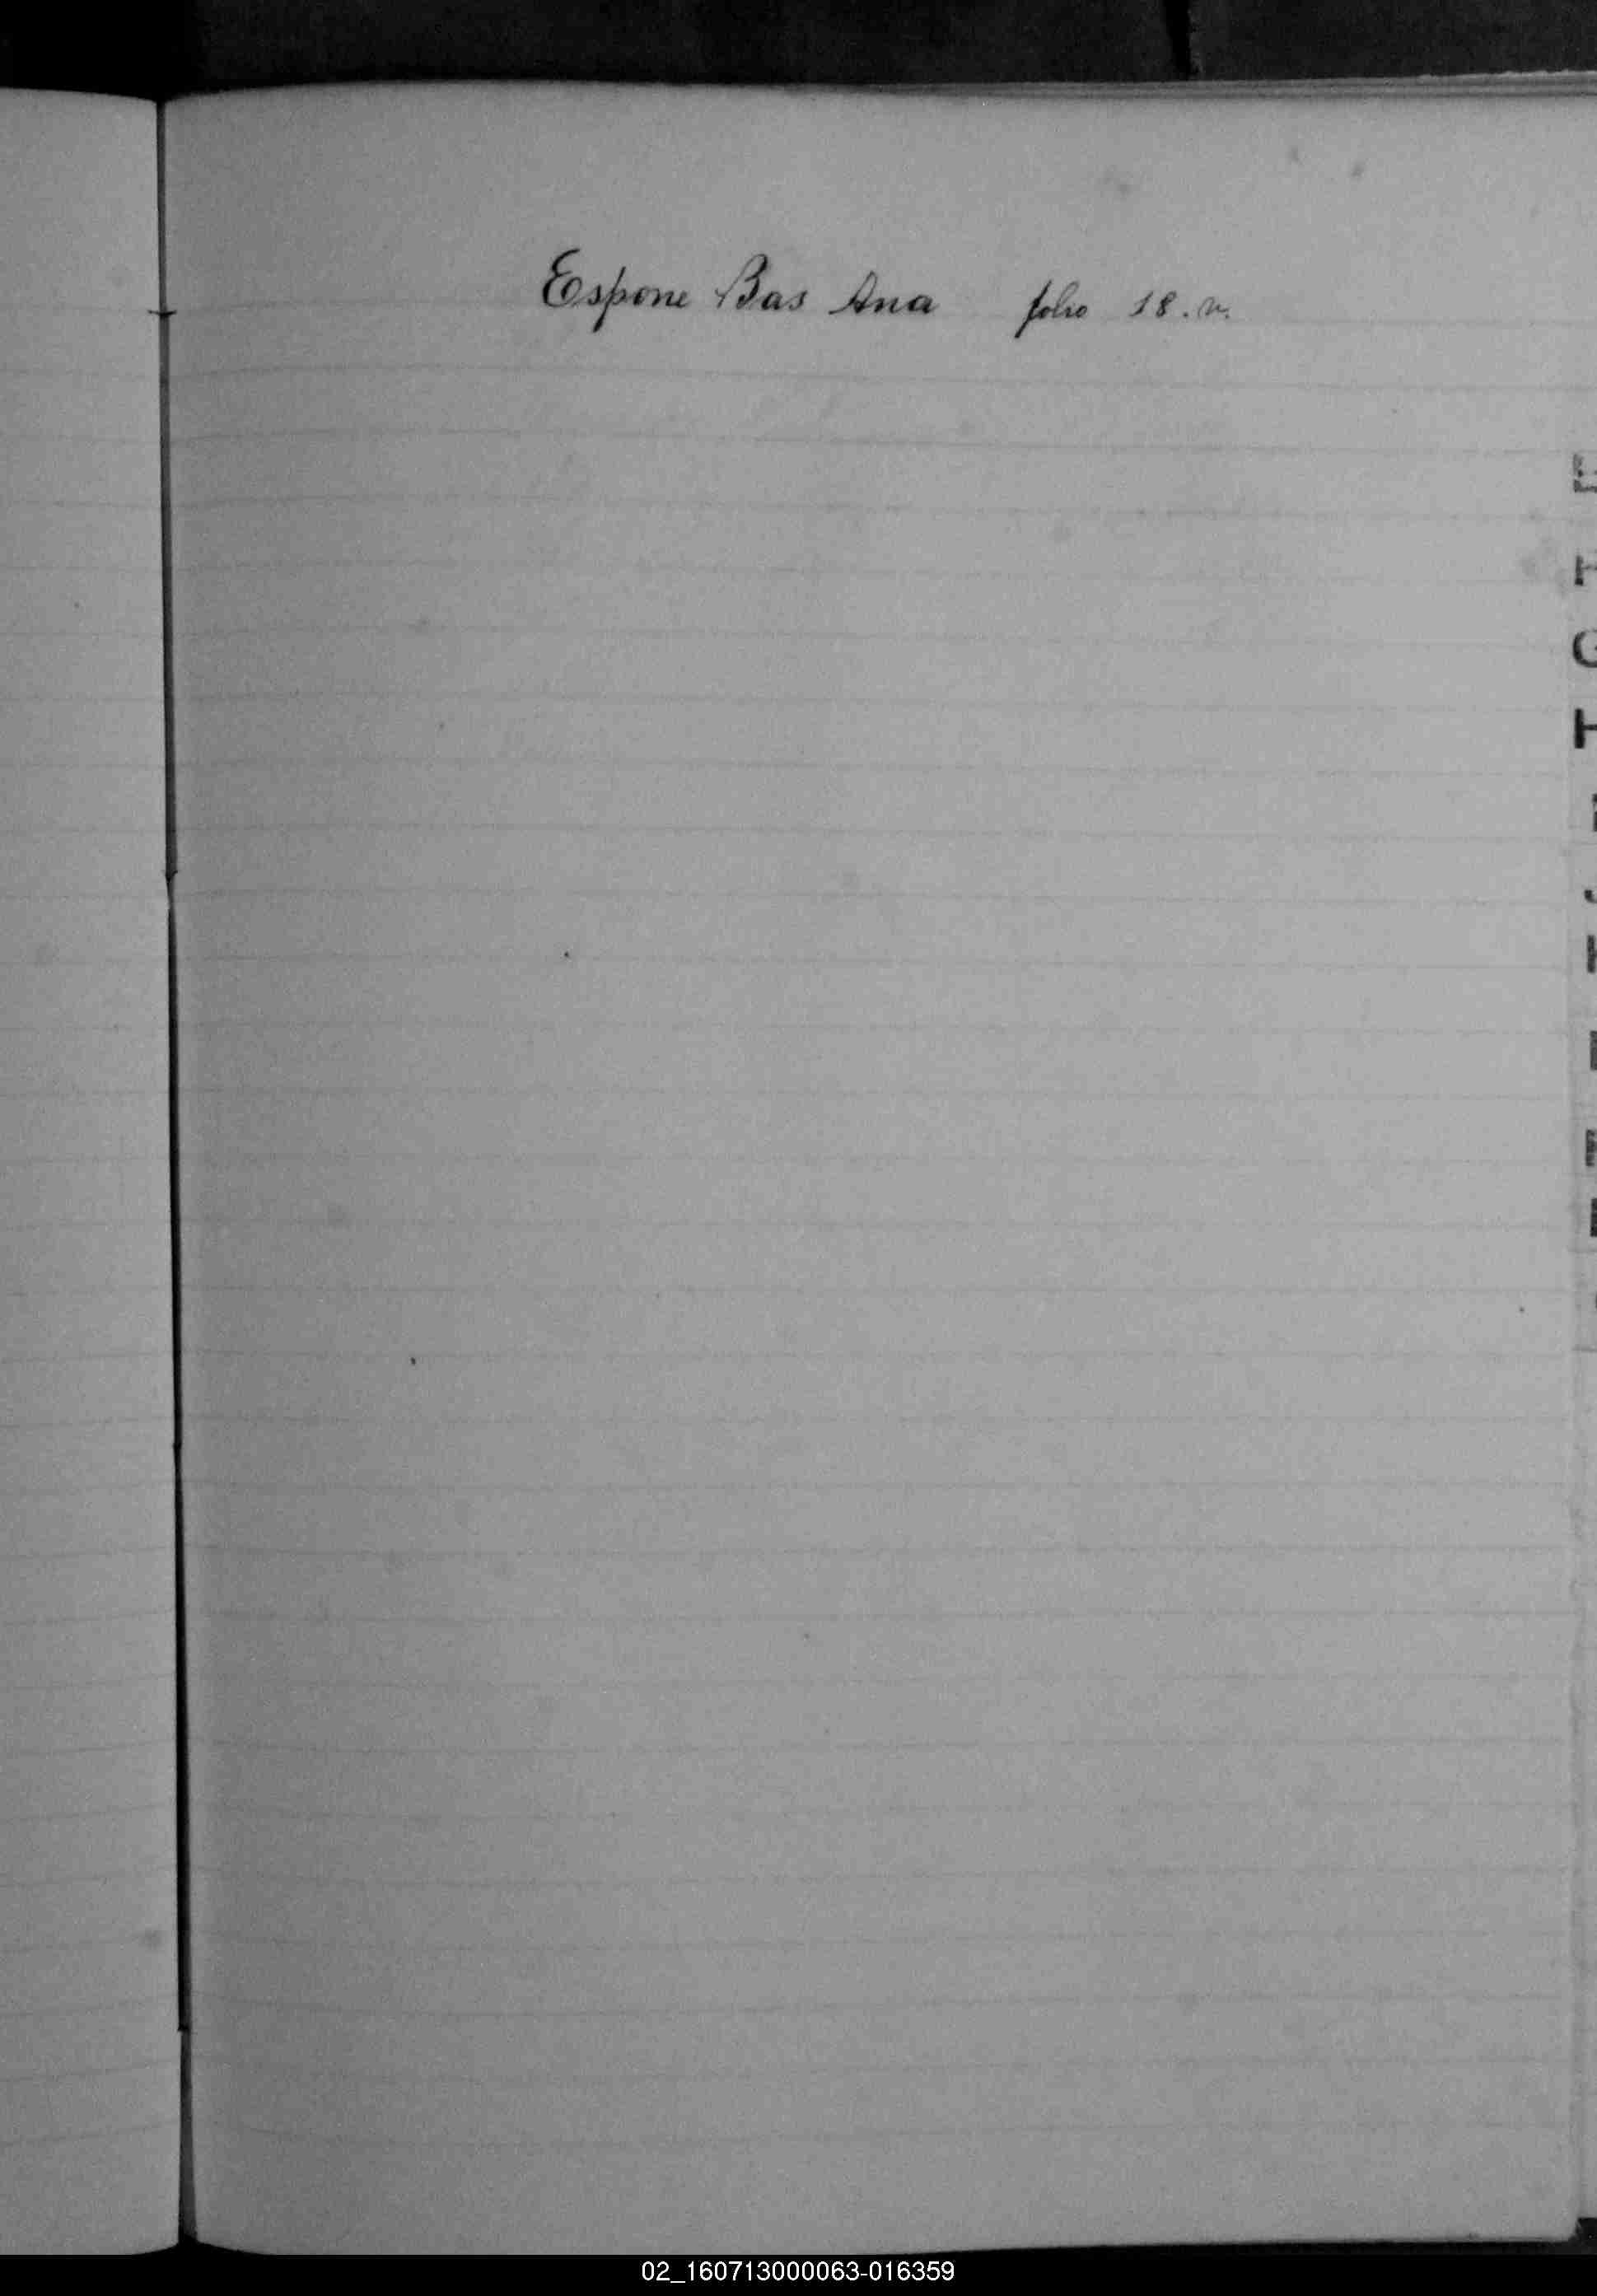 Espone Bas Ana folio 18. v.
E
F
G
H
02_160713000063-016359